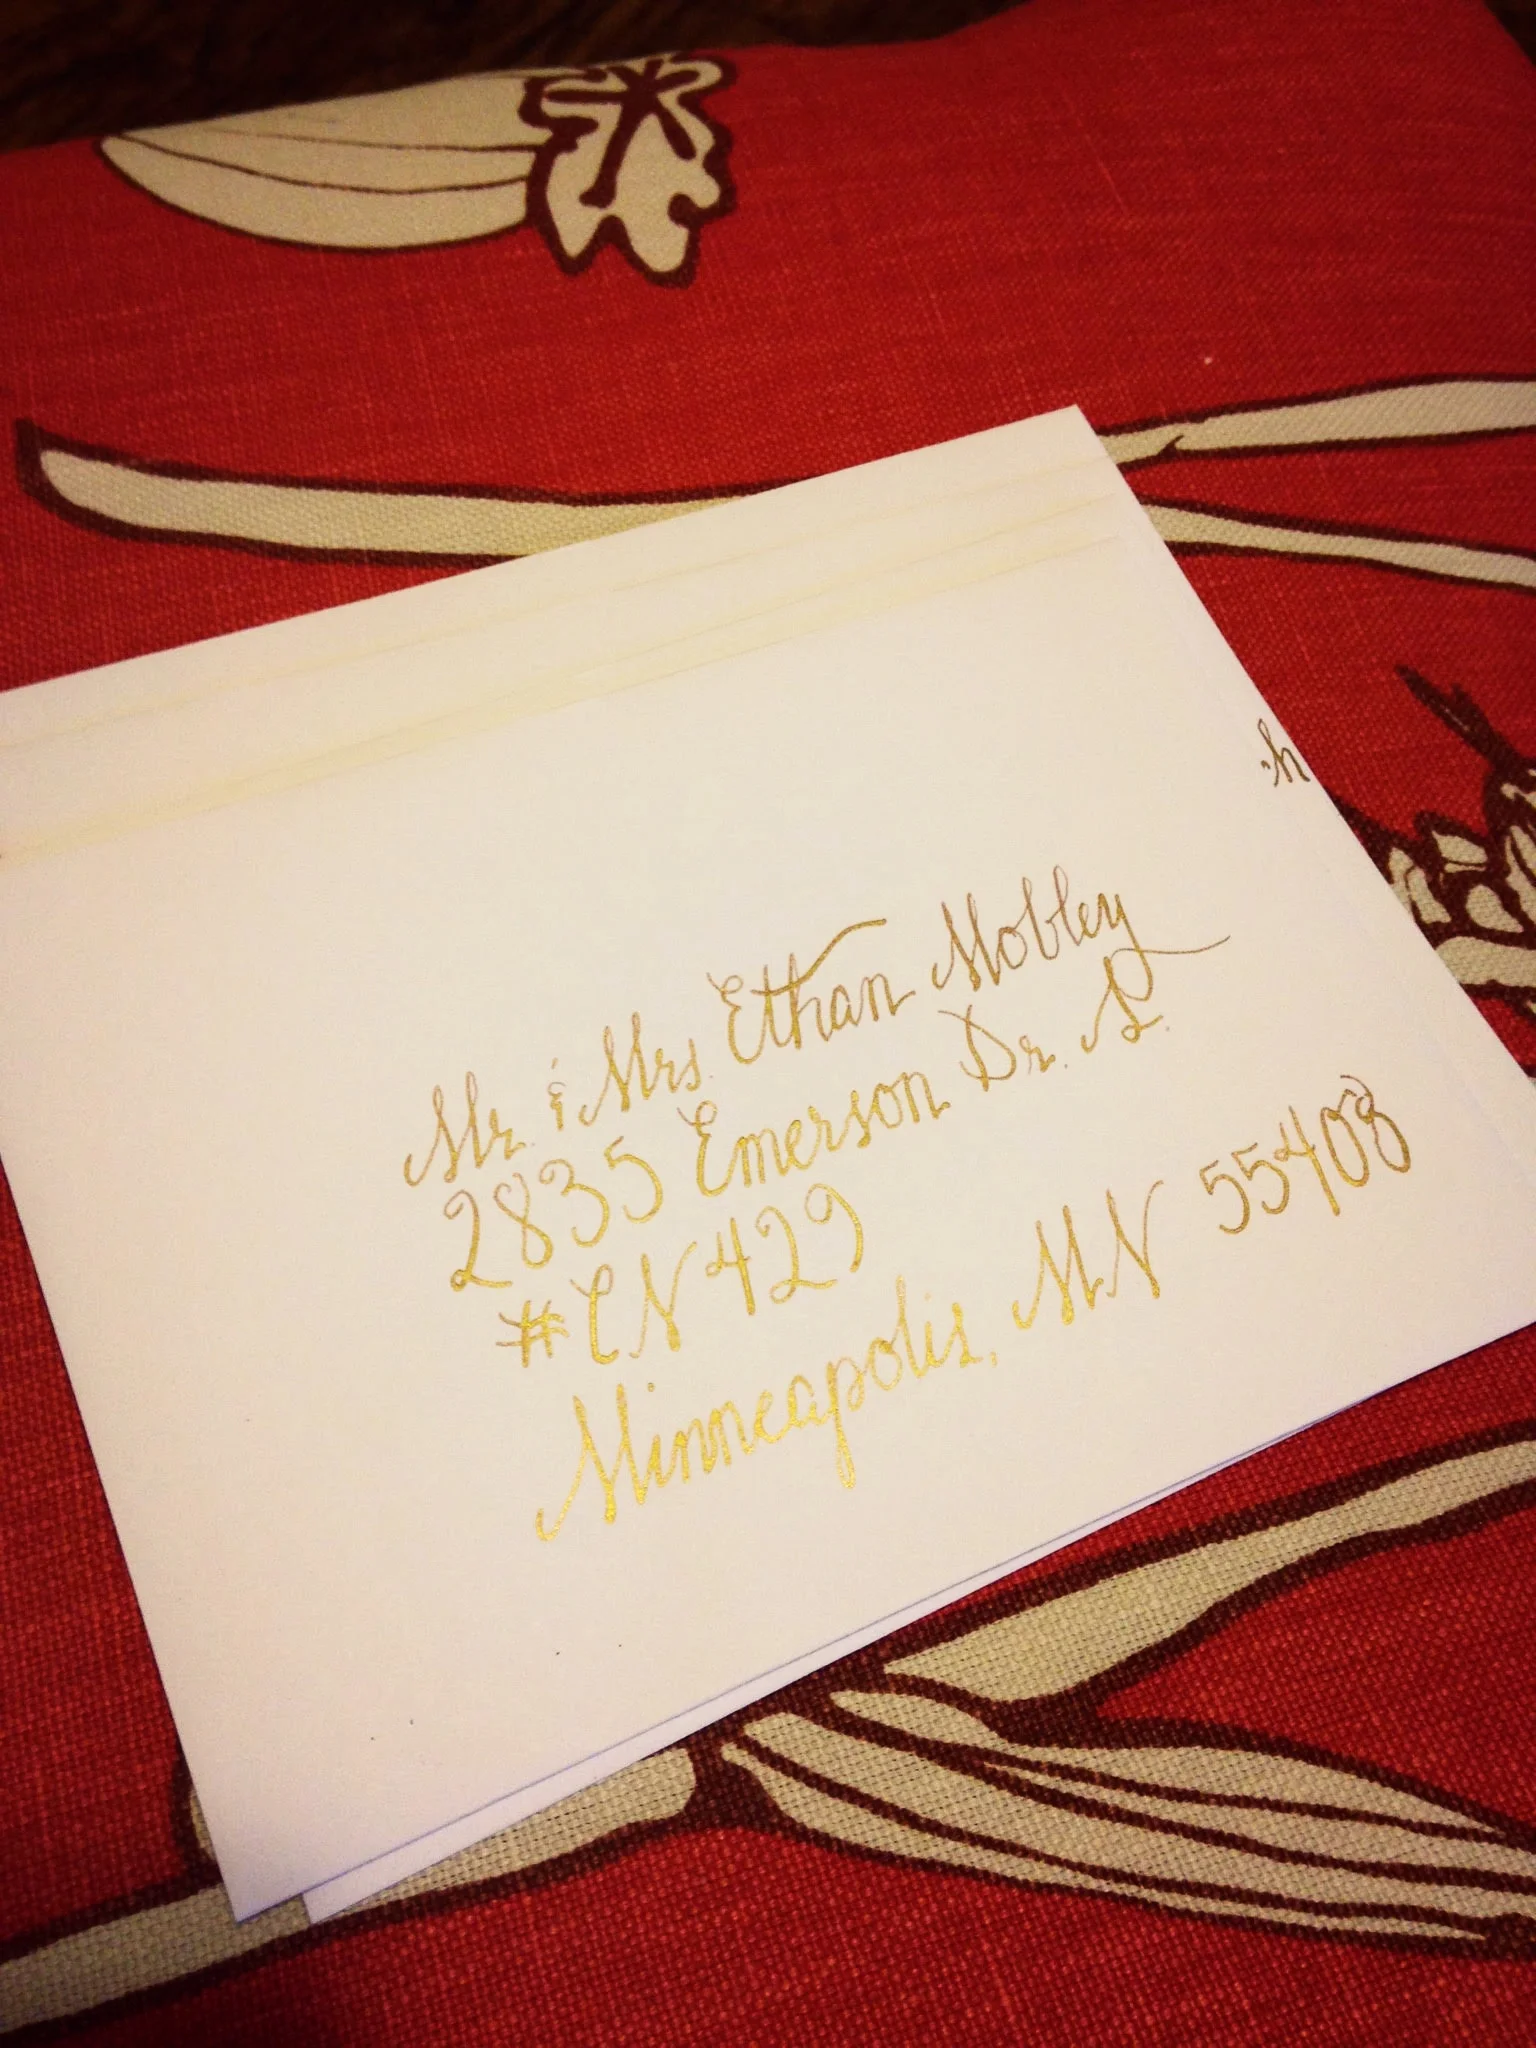 Mr. & Mrs. Ethan Mobley
2835 Emerson Dr. S.
#CN429
Minneapolis, MN 55408